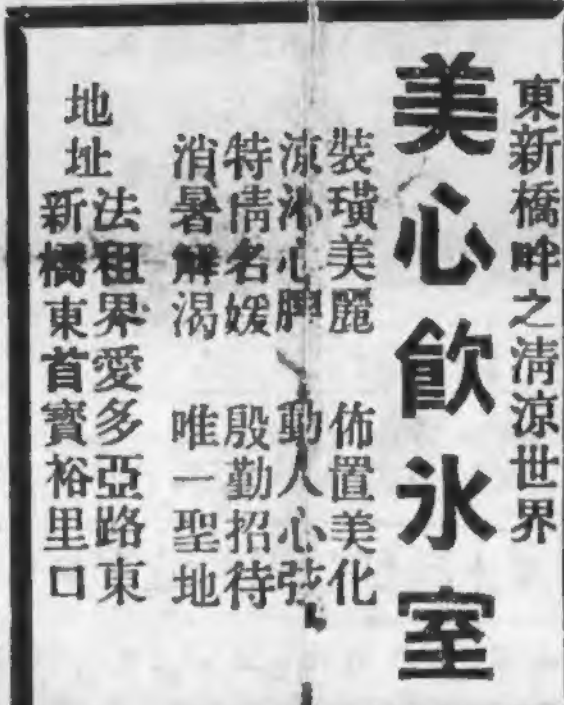 東新橋畔之清涼世界
美心飲氷室
裝璜美麗 佈置美化
涼沁心脾 動人心弦
特請名媛 殷勤招待
消暑解渴 唯一聖地
地址
法租界愛多亞路東
新橋東首寶裕里口